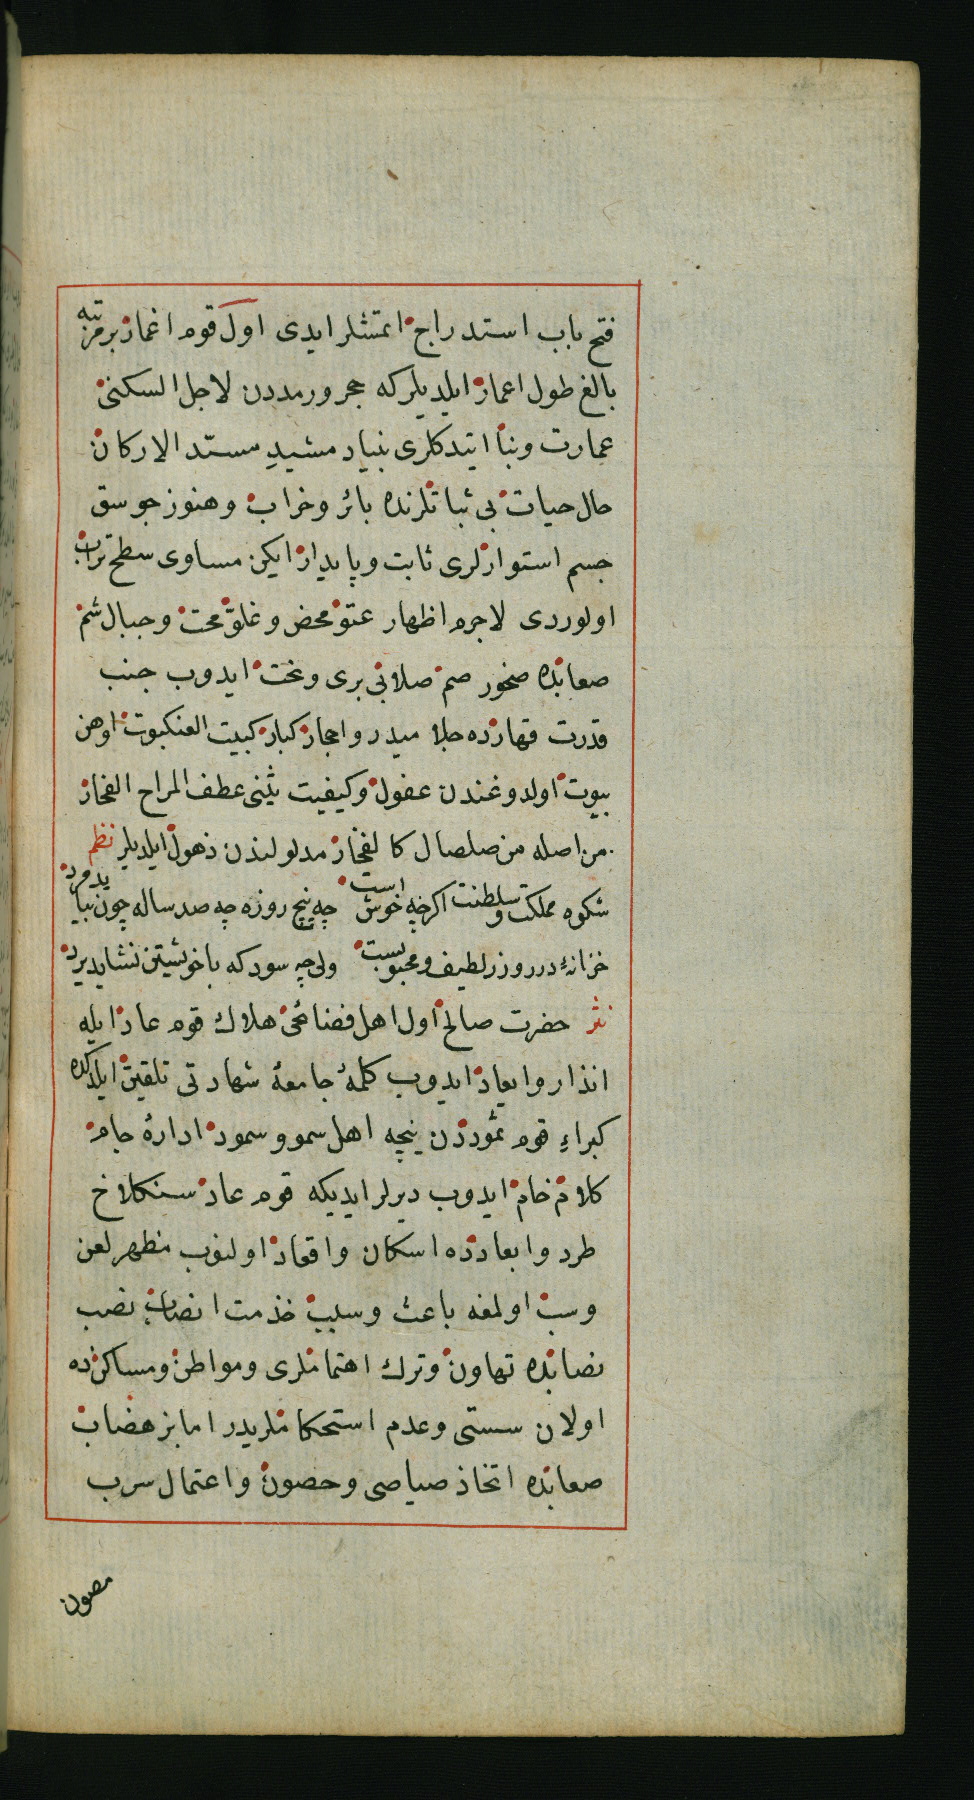 فتح باب استدراج اتمشلر ايدى اول قوم اغمار بر مرتبه
بالغ طول اعمار ايلديلر كه حجر ومدردن لاجل السكنى
عمارت وبنا ايتدكلرى بنياد مشيد مستد الاركان
حال حيات بى ثباتلرنده بائر وخراب وهنوز جوسق
جسم استوارلرى ثابت وپايدار ايكن مساوى سطح تراب
اولوردى لاجرم اظهار عتو محض وغلو محت وجبال شم
صعابده صخور صم صلابى برى ونحت ايدوب جنب
قدرت قهارده جلاميد واحجار كبار كبيت العنكبوت اوهن
بيوت اولدوغندن غفول وكيفيت يثنى عطف المراح الفخار
من اصله من صلصال كالفخار مدلولندن ذهول ايلديلر نظم
شكوه مملكت وسلطنت اكرچه خوش است چه پنج روزه چه صد ساله چون بپايد مرد
خزانۀ درر وزر لطيف ومحبوبست ولى چه سود كه با خويشتن نشايد برد
نثر حضرت صالح اول اهل فضائحى هلاك قوم عاد ايله
انذار وايعاد ايدوب كلمۀ جامعۀ شهادتى تلقين ايلدكده
كبراء قوم ثموددن نيچه اهل سمو وسمود ادارۀ جام
كلام خام ايدوب ديرلر ايديكه قوم عاد سنكلاخ
طرد وابعادده اسكان واقعاد اولنوب مظهر لعن
وسب اولمغه باعث وسبب خذمت انصاب نصب
نصابده تهاون وترك اهتماملرى ومواطن ومساكنده
اولان سستى وعدم استحكاملريدر اما بز هضاب
صعابده اتخاذ صياصى وحصون واعتمال سرب
مصون